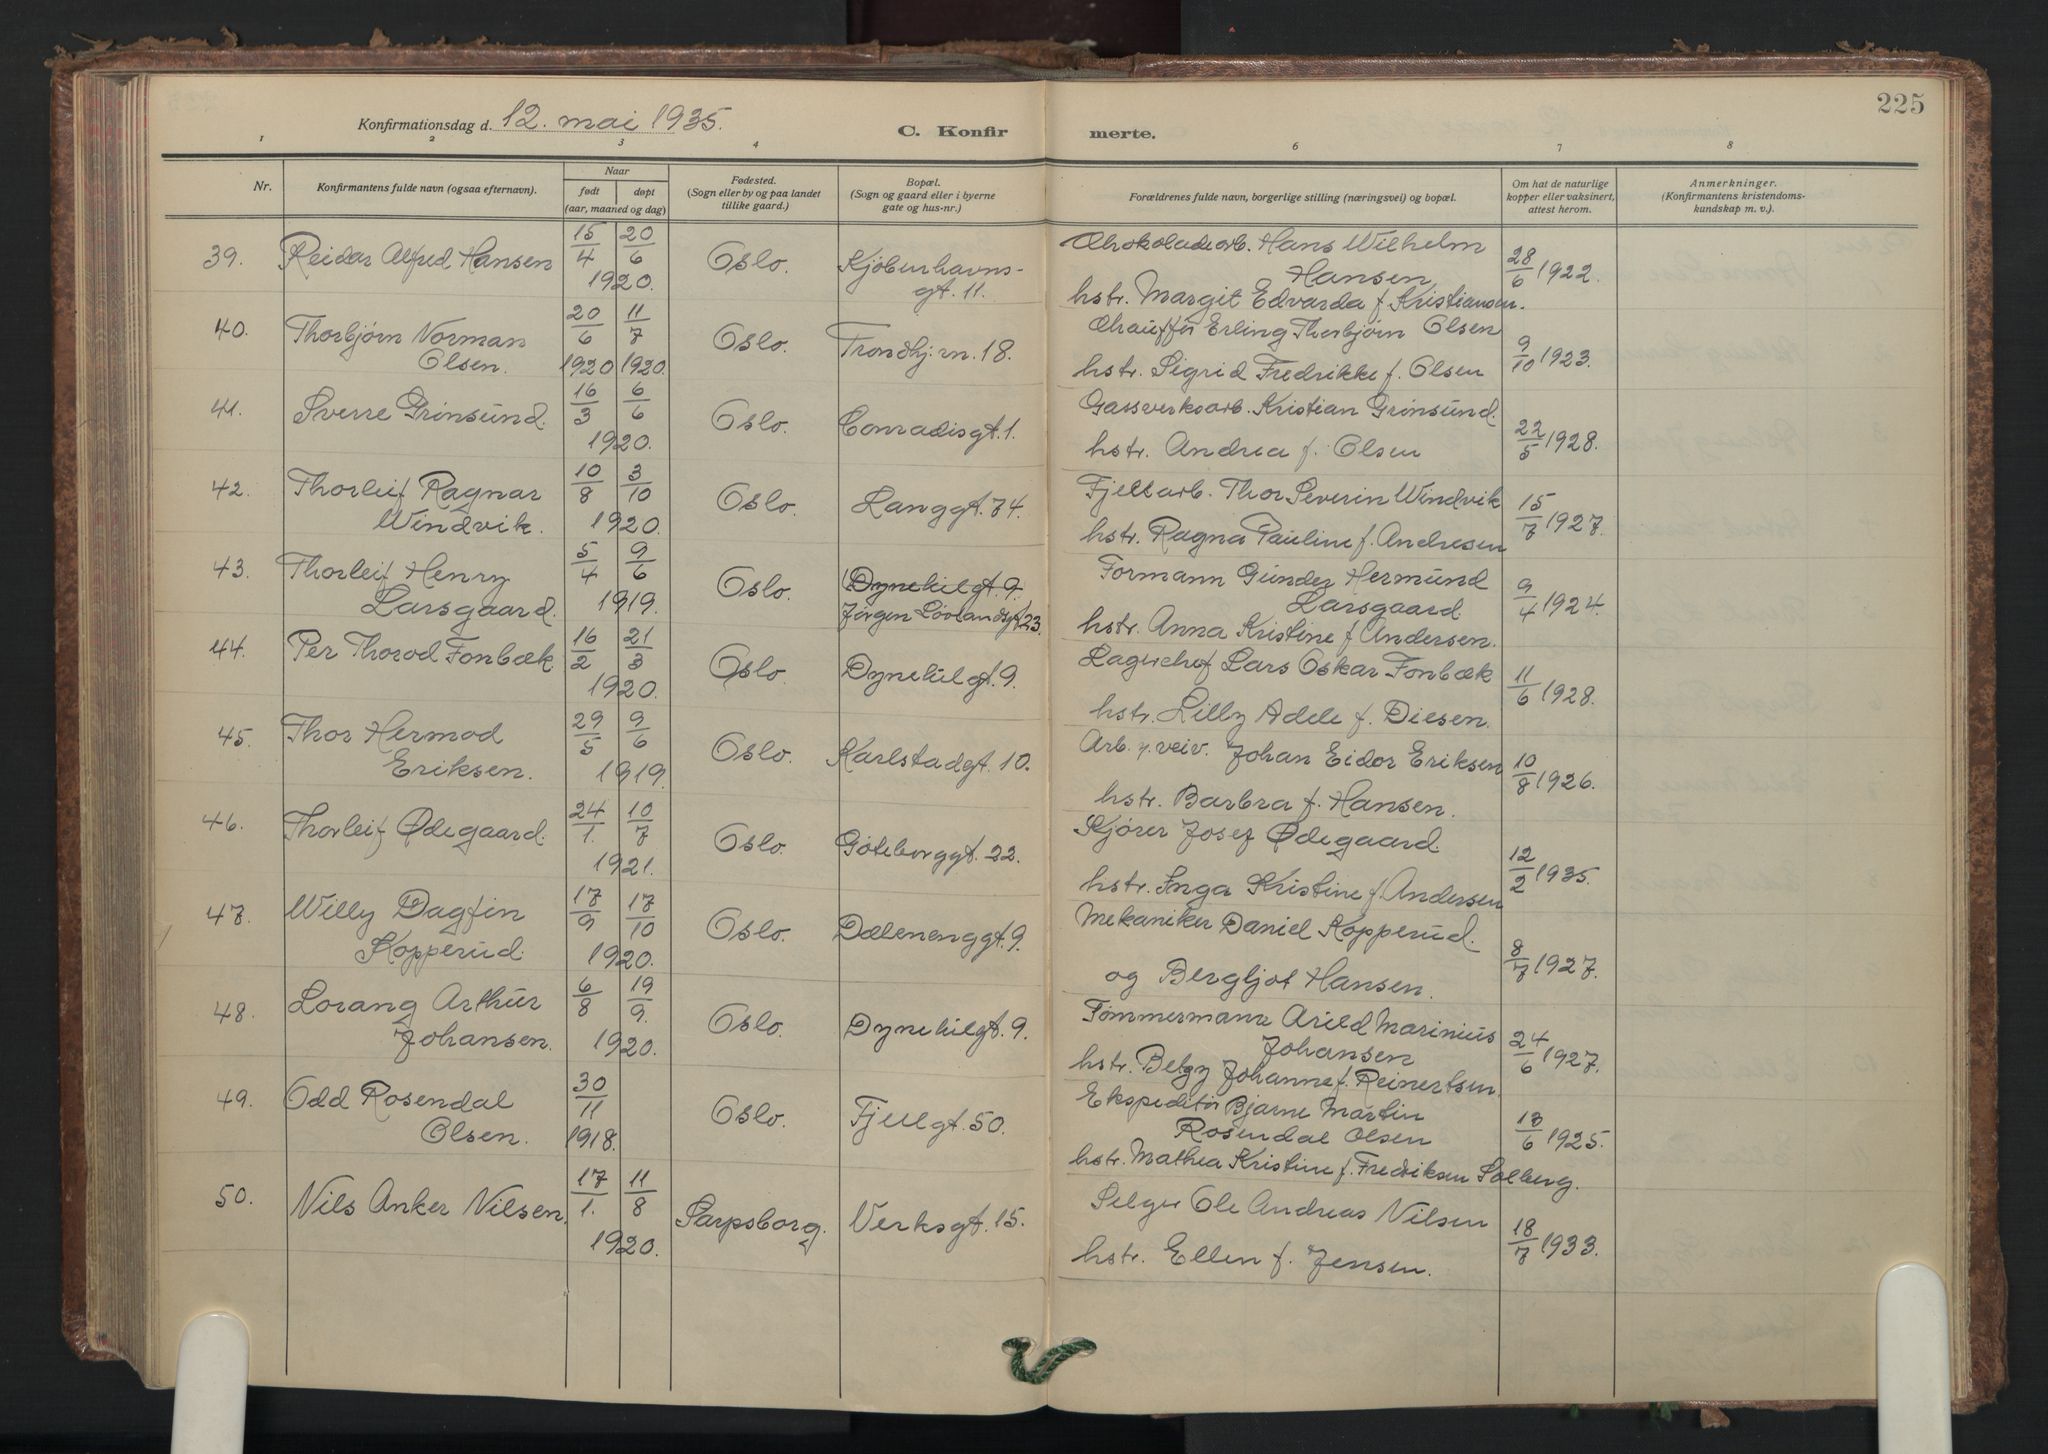 225
Konfirmationsdag d. 12. mai 1935. C. Konfir merte.
1 2 3 4 5 6 7 8
Nr. Konfirmantens fulde navn (ogsaa efternavn). Naar født døpt (aar, maaned og dag) Fødested. (Sogn eller by og paa landet tillike gaard.) Bopæl. (Sogn og gaard eller i byerne gate og hus-nr.) Forældrenes fulde navn, borgerlige stilling (næringsvei) og bopæl. Om hat de naturlige kopper eller vaksinert, attest herom. Anmerkninger. (Konfirmantens kristendomskundskap m. v.).
39. Reidar Alfred Hansen 15/4 20/6 1920. Oslo. Kjöbenhavns-
gt. 11. Chokoladearb. Hans Wilhelm
Hansen 28/6 1922.
hstr. Margit Edvarda f. Kristiansen.
40. Thorbjørn Norman
Olsen. 20/6 1920 11/7 1920. Oslo. Trondhj.vn. 18. Chauffør Erling Thorbjørn Olsen
hstr. Sigrid Fredrikke f. Olsen 9/10 1923.
41. Sverre Grinsund. 16/3 6/6 1920. Oslo. Conradisgt. 1. Gassverksarb. Kristian Grinsund.
hstr. Andrea f. Olsen 22/5 1928.
42. Thorleif Ragnar
Windvik. 10/8 3/10 1920. Oslo. Langgt. 74. Fjellarb. Thor Severin Windvik
hstr. Ragna Pauline f. Andresen 15/7 1927.
43. Thorleif Henry
Larsgaard. 5/4 9/6 1919. Oslo. Dynekilgt. 9.
Jørgen Løvlandsgt. 23. Formann Gunder Hermund
Larsgaard. 9/4 1924.
hstr. Anna Kristine f. Andersen.
44. Per Thorod Fonbæk. 16/2 21/3 1920. Oslo. Dynekilgt. 9. Lagerchef Lars Oskar Fonbæk
hstr. Lilly Adele f. Diesen. 11/6 1928.
45. Thor Hermod
Eriksen. 29/5 9/6 1919. Oslo. Karlstadgt. 10. Arb. v. veiv. Johan Eidor Eriksen
hstr. Barbra f. Hansen. 10/8 1926.
46. Thorleif Ødegaard. 24/1. 10/7 1921. Oslo. Göteborggt. 22. Kjører Josef Ødegaard
hstr. Inga Kristine f. Andersen 12/2 1935.
47. Willy Dagfin
Kopperud. 17/9 17/10 1920. Oslo. Dælenenggt. 9. Mekaniker Daniel Kopperud.
og Bergljot Hansen. 8/7 1927.
48. Lorang Arthur
Johansen. 6/8 19/9. 1920. Oslo. Dynekilgt. 9. Tømmermann Arild Marinius
Johansen 24/6 1927.
hstr. Betzy Johanne f. Reinertsen.
49. Odd Rosendal
Olsen. 30/11 1918. Oslo. Fjellgt. 50. Ekspeditør Bjarne Martin
Rosendal Olsen 13/6 1925.
hstr. Mathea Kristine f. Fredriksen Solberg.
50. Nils Anker Nilsen. 17/1. 11/8 1920. Sarpsborg. Verksgt. 15. Selger Ole Andreas Nilsen
hstr. Ellen f. Jensen. 18/7 1933.